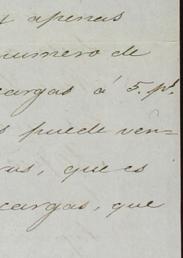 apenas
numero de
cargas á 5. p.s
s puede ven-
ras, que es
cargas, que